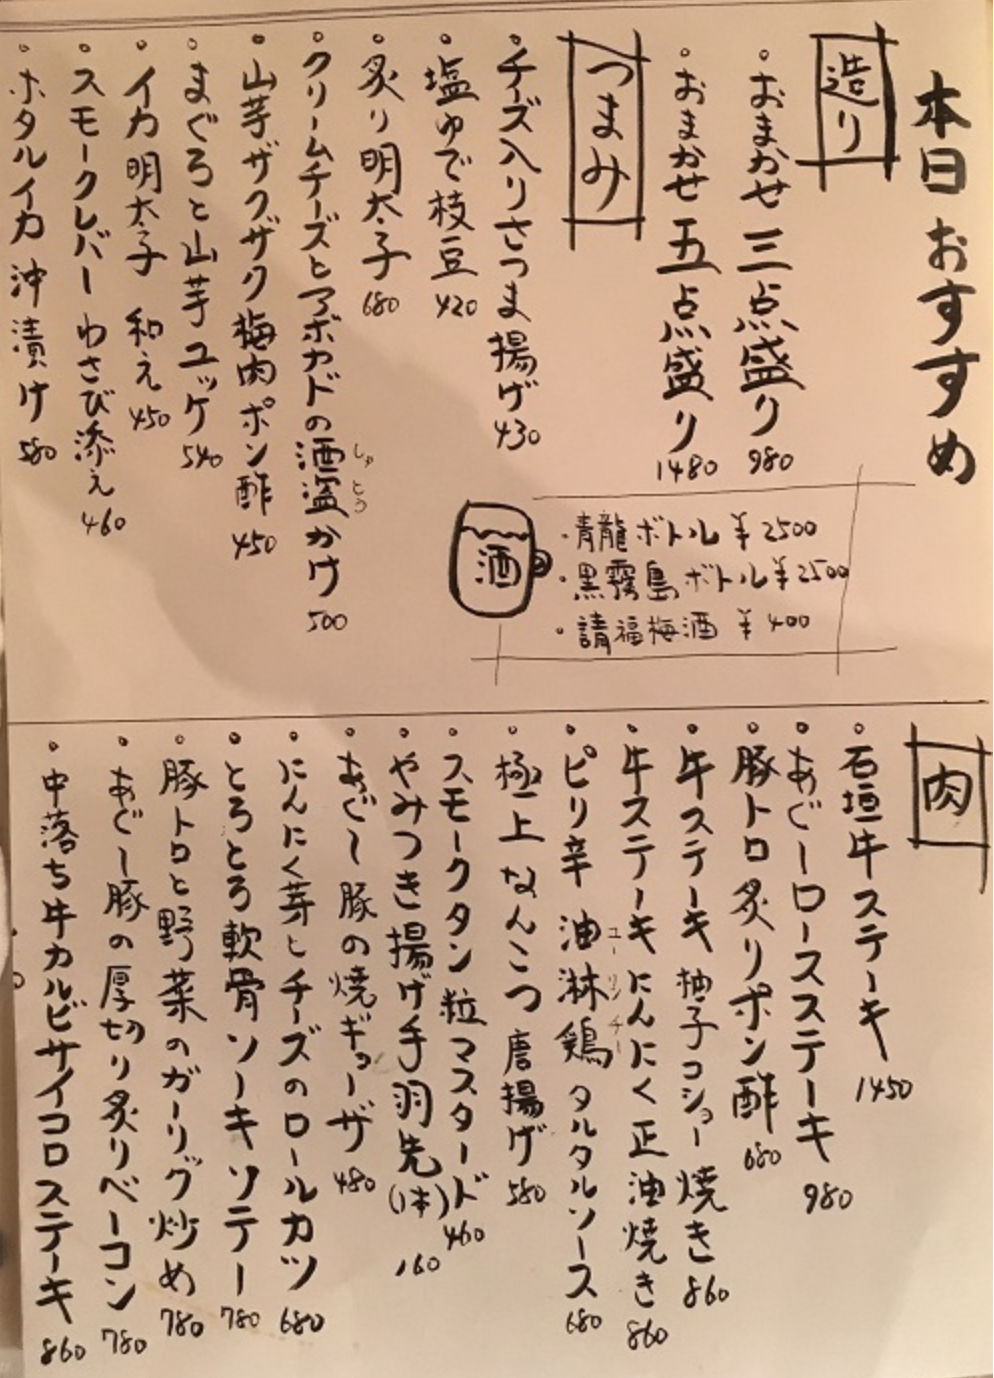 本日おすすめ
造り
・おまかせ三点盛り 980
・おまかせ五点盛り 1480
つまみ
・チーズ入りさつま揚げ 430
・塩ゆで枝豆 420
・炙り明太子 680
・クリームチーズとアボカドの酒盗かけ 500
しゅとう
・山芋ザクザク梅肉ポン酢 450
・まぐろと山芋ユッケ 540
・イカ明太子和え 450
・スモークレバーわさび添え 460
・ホタルイカ沖漬け 580
酒
・青龍ボトル ¥2500
・黒霧島ボトル ¥2500
・請福梅酒 ¥400
肉
・石垣牛ステーキ 1450
・あぐーロースステーキ 980
・豚トロ炙りポン酢 680
・牛ステーキ柚子コショー焼き 860
・牛ステーキにんにく正油焼き 860
・ピリ辛油淋鶏タルタルソース 680
ユーリンチー
・極上なんこつ唐揚げ 580
・スモークタン粒マスタード 460
・やみつき揚げ手羽先(1本) 160
・あぐー豚の焼ギョーザ 480
・にんにく芽とチーズのロールカツ 680
・とろとろ軟骨ソーキソテー 780
・豚トロと野菜のガーリック炒め 780
・あぐー豚の厚切り炙りベーコン 780
・中落ち牛カルビサイコロステーキ 860